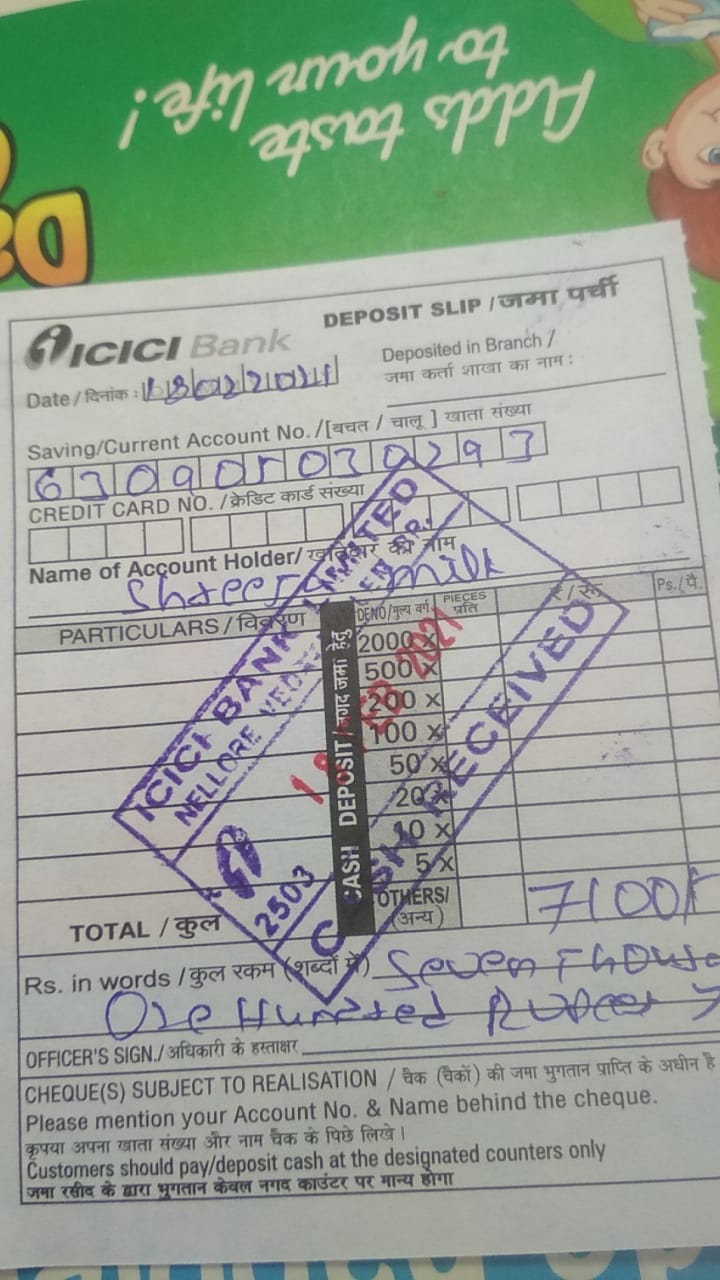 Adds taste
to your life!
ICICI Bank
DEPOSIT SLIP / जमा पर्ची
Date / दिनांक : 18022021
Deposited in Branch /
जमा कर्ता शाखा का नाम :
Saving/Current Account No. /[बचत / चालू ] खाता संख्या
630905030293
CREDIT CARD NO. / क्रेडिट कार्ड संख्या
Name of Account Holder/ का नाम
milk
PARTICULARS / विवरण
CASH DEPOSIT / नगद जमा हेतु
DENO/मूल्य वर्ग
PIECES
प्रति
₹ / रू.
Ps. / पै.
2000 x
500 x
200 x
100 x
50 x
20 x
10 x
5 x
OTHERS/
(अन्य)
TOTAL / कुल
7100/
ICICI BANK LIMITED
NELLORE
18 FEB 2021
2503
CASH RECEIVED
Rs. in words / कुल रकम (शब्दों में) Seven Thousa
One Hundred Rupees
OFFICER'S SIGN./ अधिकारी के हस्ताक्षर
CHEQUE(S) SUBJECT TO REALISATION / चैक (चैकों) की जमा भुगतान प्राप्ति के अधीन है
Please mention your Account No. & Name behind the cheque.
कृपया अपना खाता संख्या और नाम चैक के पिछे लिखे।
Customers should pay/deposit cash at the designated counters only
जमा रसीद के द्वारा भुगतान केवल नगद काउंटर पर मान्य होगा